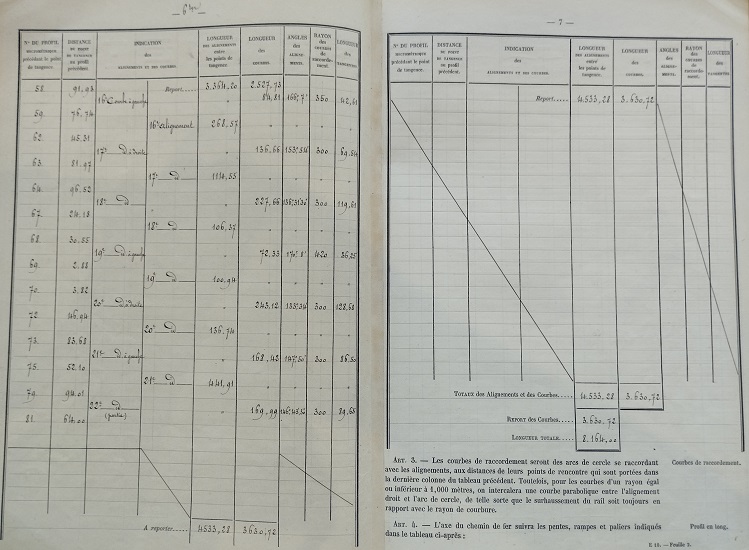 — 6 —
N° DU PROFIL kilométrique précédant le point de tangence. | DISTANCE du point de tangence au profil précédent. | INDICATION des ALIGNEMENTS ET DES COURBES. | LONGUEUR DES ALIGNEMENTS entre les points de tangence. | LONGUEUR des COURBES. | ANGLES des ALIGNEMENTS. | RAYON des COURBES de raccordement. | LONGUEUR des TANGENTES.
Report | 3.364,20 | 2.527,73
58. | 91,93 | 16e Courbe à gauche | " | 84,81 | 166°,7' | 350 | 42,61
59. | 76,74 | 16e alignement | 268,57 | " | " | " | "
62. | 45,31 | 17e d° à droite | " | 136,66 | 153°,54 | 300 | 69,54
63. | 81,97 | 17e d° | 114,55 | " | " | " | "
64. | 96,52 | 18e d° | " | 227,66 | 300 | 119,61
67. | 24,18 | 18e d° | 106,37 | " | " | " | "
68. | 30,55 | 19e d° à gauche | " | 72,33 | 170°,8' | 420 | 36,25
69. | 2,88 | 19e d° | 100,94 | " | " | " | "
70. | 3,82 | 20e d° à droite | " | 243,12 | 300 | 128,68
72. | 46,94 | 20e d° | 136,74 | " | " | " | "
73. | 83,68 | 21e d° à gauche | " | 168,42 | 147°,50' | 300 | 86,50
75. | 52,10 | 21e d° | 441,91 | " | " | " | "
79. | 94,01 | 22e d° (partie) | " | 169,99 | 300 | 89,68
81. | 64,00
A reporter | 4533,28 | 3630,72
— 7 —
N° DU PROFIL kilométrique précédant le point de tangence. | DISTANCE du point de tangence au profil précédent. | INDICATION des ALIGNEMENTS ET DES COURBES. | LONGUEUR DES ALIGNEMENTS entre les points de tangence. | LONGUEUR des COURBES. | ANGLES des ALIGNEMENTS. | RAYON des COURBES de raccordement. | LONGUEUR des TANGENTES.
Report | 4.533,28 | 3.630,72
TOTAUX des Alignements et des Courbes | 4.533,28 | 3.630,72
REPORT des Courbes | 3.630,72
LONGUEUR TOTALE | 8.164,00
ART. 3. — Les courbes de raccordement seront des arcs de cercle se raccordant
Courbes de raccordement.
avec les alignements, aux distances de leurs points de rencontre qui sont portées dans
la dernière colonne du tableau précédent. Toutefois, pour les courbes d'un rayon égal
ou inférieur à 1,000 mètres, on intercalera une courbe parabolique entre l'alignement
droit et l'arc de cercle, de telle sorte que le surhaussement du rail soit toujours en
rapport avec le rayon de courbure.
ART. 4. — L'axe du chemin de fer suivra les pentes, rampes et paliers indiqués
Profil en long.
dans le tableau ci-après :
E 19. — Feuille 3.